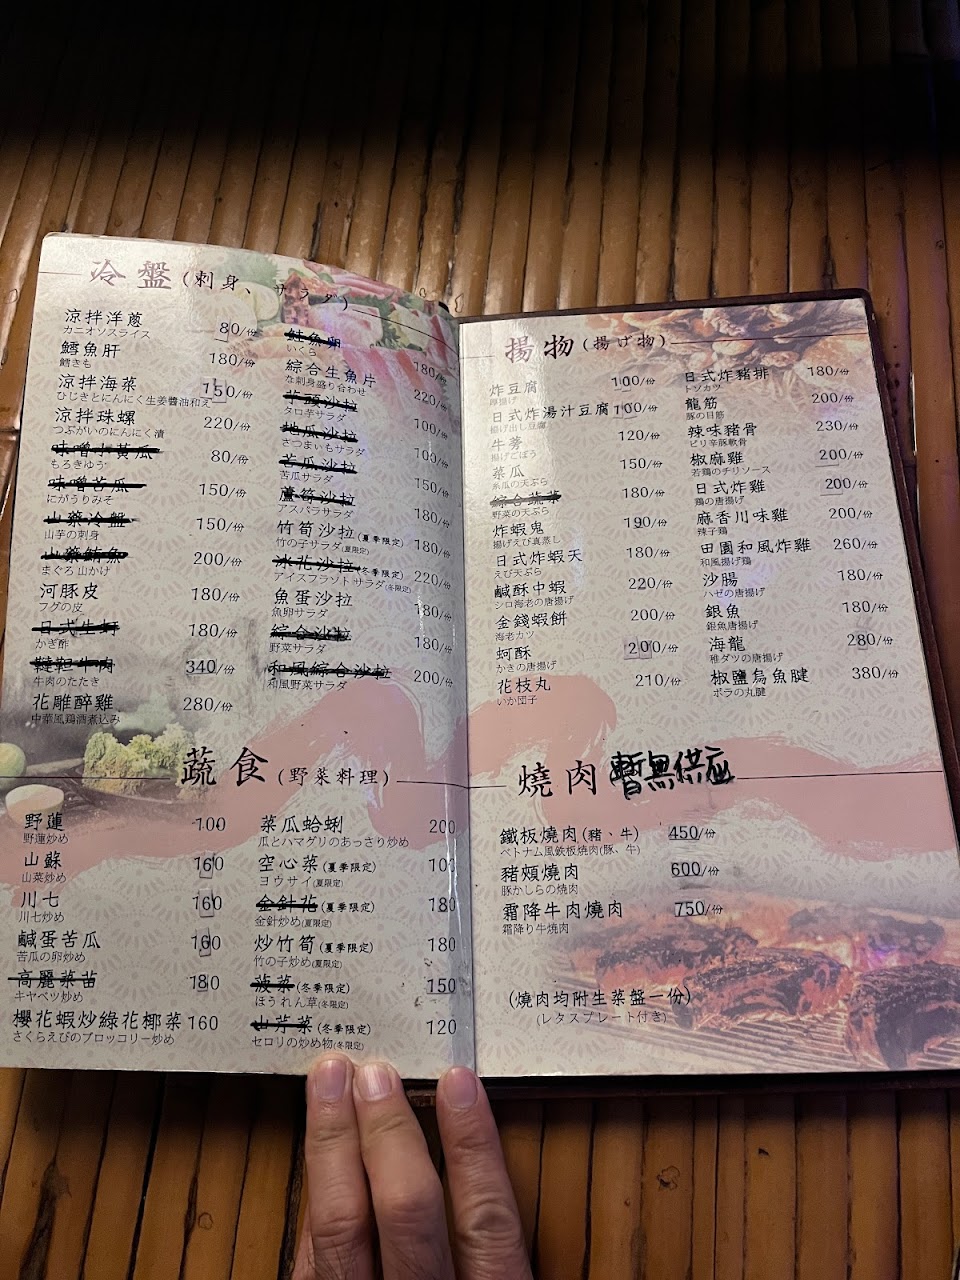 冷盤(刺身、サラダ)
涼拌洋蔥 80/份
カニオソスライス
鱈魚肝 180/份
鱈きも
涼拌海菜 150/份
ひじきとにんにく生姜醬油和え
涼拌珠螺 220/份
つぶがいのにんにく漬
味噌小黃瓜 80/份
もろきゆう
味噌苦瓜 150/份
にがうりみそ
山藥冷盤 150/份
山芋の刺身
山藥鮪魚 200/份
まぐろ山かけ
河豚皮 180/份
フグの皮
日式生蚵 180/份
かき酢
韃靼牛肉 340/份
牛肉のたたき
花雕醉雞 280/份
中華風鶏酒煮込み
鮭魚卵 180/份
いくら
綜合生魚片 220/份
な刺身盛り合わせ
芋頭沙拉
タロ芋サラダ
地瓜沙拉 100/份
さつまいもサラダ
苦瓜沙拉 150/份
苦瓜サラダ
蘆筍沙拉 180/份
アスパラサラダ
竹筍沙拉(夏季限定) 180/份
竹の子サラダ(夏限定)
冰花沙拉(冬季限定) 220/份
アイスフラソトサラダ(冬限定)
魚蛋沙拉 180/份
魚卵サラダ
綜合沙拉 180/份
野菜サラダ
和風綜合沙拉 200/份
和風野菜サラダ
蔬食(野菜料理)
野蓮 100
野蓮炒め
山蘇 160
山菜炒め
川七 160
川七炒め
鹹蛋苦瓜 160
苦瓜の卵炒め
高麗菜苗 180
キヤベツ炒め
櫻花蝦炒綠花椰菜 160
さくらえびのブロッコリー炒め
菜瓜蛤蜊 200
瓜とハマグリのあっさり炒め
空心菜(夏季限定) 100
ヨウサイ(夏限定)
金針花(夏季限定) 180
金針炒め(夏限定)
炒竹筍(夏季限定) 180
竹の子炒め(夏限定)
菠菜(冬季限定) 150
ほうれん草(冬限定)
山芹菜(冬季限定) 120
セロリの炒め物(冬限定)
揚物(揚げ物)
炸豆腐 100/份
厚揚げ
日式炸湯汁豆腐 100/份
揚げ出し豆腐
牛蒡 120/份
揚げごぼう
菜瓜 150/份
糸瓜の天ぷら
綜合蔬菜 180/份
野菜の天ぷら
炸蝦鬼 190/份
揚げえび真蒸し
日式炸蝦天 180/份
えび天ぷら
鹹酥中蝦 220/份
シロ海老の唐揚げ
金錢蝦餅 200/份
海老カツ
蚵酥 200/份
かきの唐揚げ
花枝丸 210/份
いか団子
日式炸豬排 180/份
トソカツ
龍筋 200/份
豚の目筋
辣味豬骨 230/份
ピリ辛豚軟骨
椒麻雞 200/份
若鶏のチリソース
日式炸雞 200/份
鶏の唐揚げ
麻香川味雞 200/份
辣子鶏
田園和風炸雞 260/份
和風揚げ鶏
沙腸 180/份
ハゼの唐揚げ
銀魚 180/份
銀魚唐揚げ
海龍 280/份
稚ダツの唐揚げ
椒鹽烏魚腱 380/份
ボラの丸腱
燒肉 暫無供应
鐵板燒肉(豬、牛) 450/份
ベトナム風鉄板焼肉(豚、牛)
豬頰燒肉 600/份
豚かしらの焼肉
霜降牛肉燒肉 750/份
霜降り牛焼肉
(燒肉均附生菜盤一份)
(レタスプレート付き)